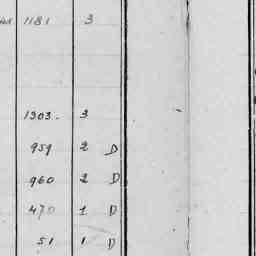 1181 3
1303. 3
959 2 D
960 2 D
470 1 D
51 1 D